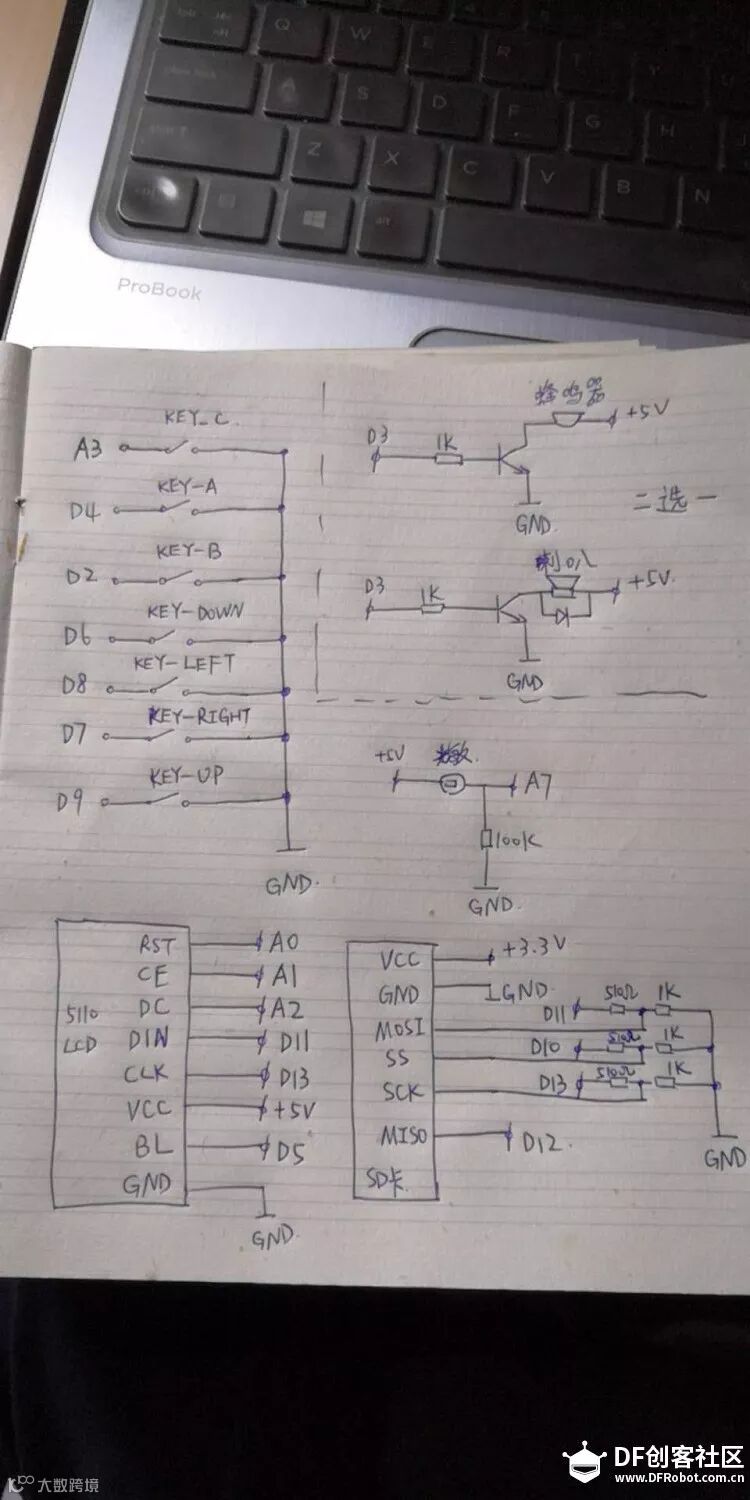 Q W E R T Y
A S D F G H
Z X C V B N
alt
ProBook
KEY_C
A3
KEY-A
D4
KEY-B
D2
KEY-DOWN
D6
KEY-LEFT
D8
KEY-RIGHT
D7
KEY-UP
D9
GND.
蜂鸣器
D3 1K +5V
GND.
二选一
喇叭
D3 1K +5V.
GND
+5V 光敏 A7
100K
GND.
5110
LCD
RST A0
CE A1
DC A2
DIN D11
CLK D13
VCC +5V
BL D5
GND
GND
VCC +3.3V
GND GND
MOSI D11 510Ω 1K
SS D10 510Ω 1K
SCK D13 510Ω 1K
MISO D12.
SD卡
GND
DF创客社区
www.DFRobot.com.cn
大数跨境